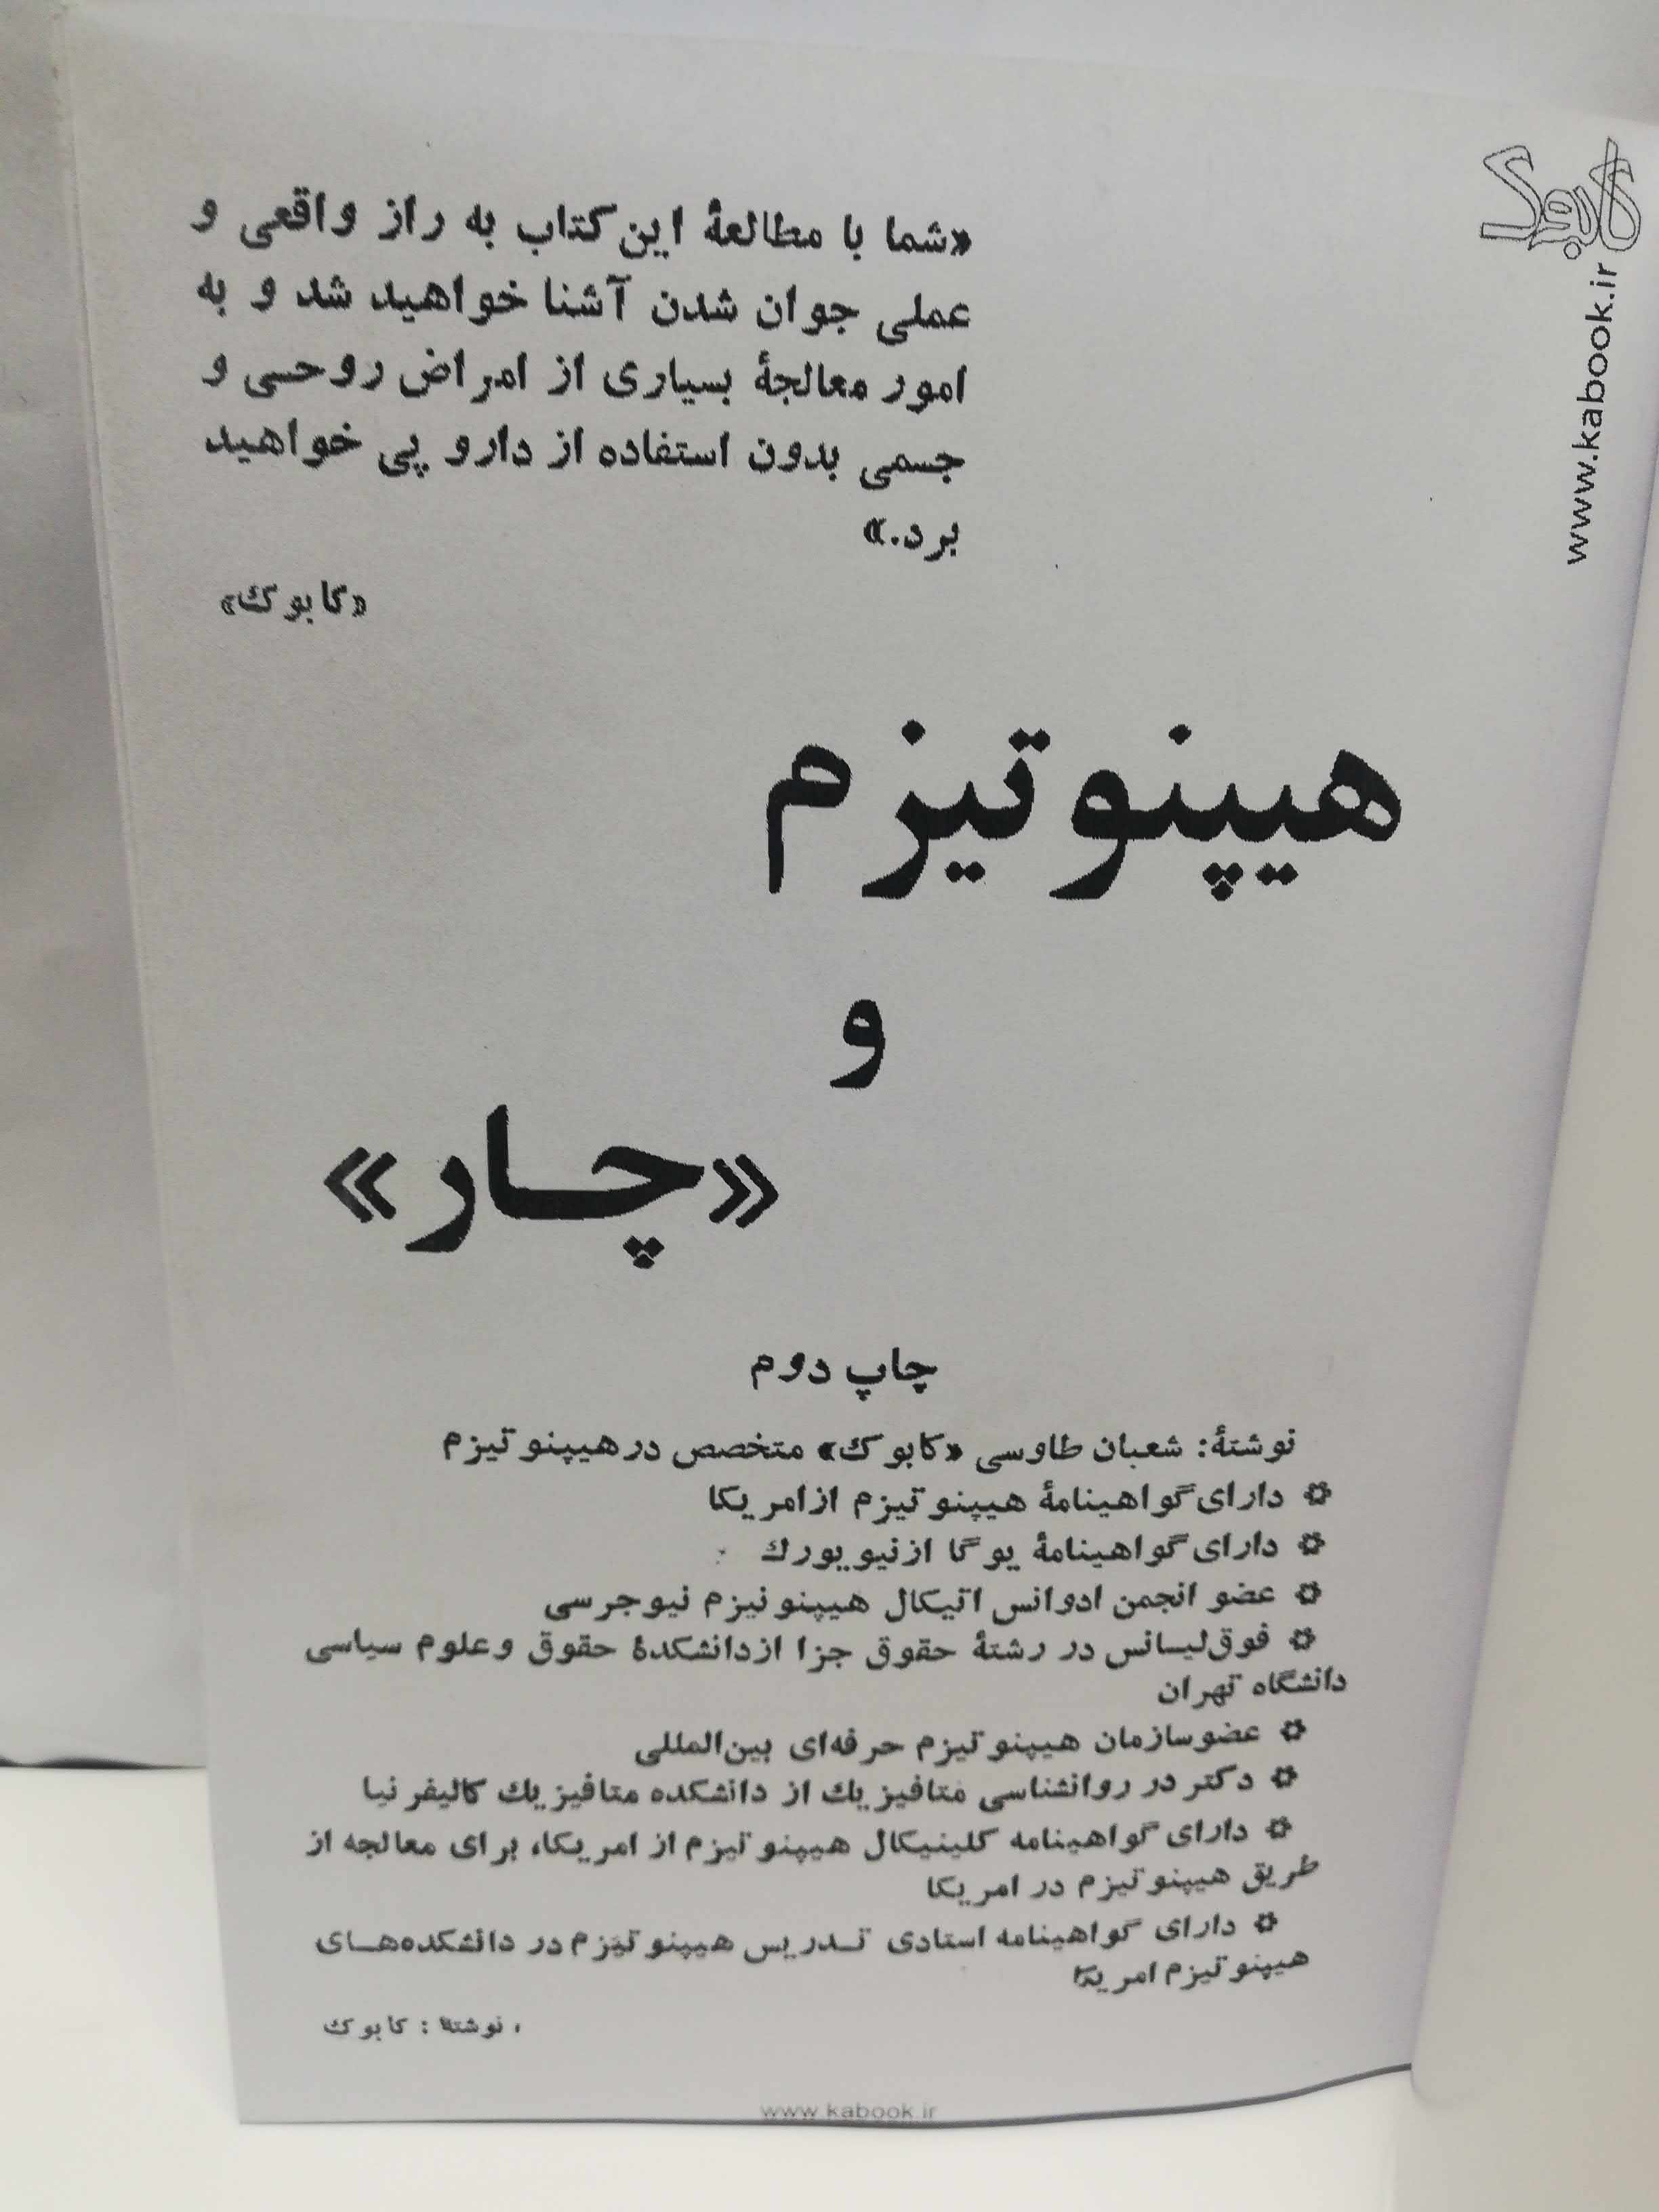 کابوک
www.kabook.ir
«شما با مطالعهٔ این کتاب به راز واقعی و
عملی جوان شدن آشنا خواهید شد و به
امور معالجهٔ بسیاری از امراض روحی و
جسمی بدون استفاده از دارو پی خواهید
برد.»
«کابوک»
هیپنوتیزم
و
«چار»
چاپ دوم
نوشتهٔ: شعبان طاوسی «کابوک» متخصص در هیپنوتیزم
✿ دارای گواهینامهٔ هیپنوتیزم از امریکا
✿ دارای گواهینامهٔ یوگا از نیویورک
✿ عضو انجمن ادوانس اتیکال هیپنوتیزم نیوجرسی
✿ فوق‌لیسانس در رشتهٔ حقوق جزا از دانشکدهٔ حقوق و علوم سیاسی
دانشگاه تهران
✿ عضو سازمان هیپنوتیزم حرفه‌ای بین‌المللی
✿ دکتر در روانشناسی متافیزیک از دانشکده متافیزیک کالیفرنیا
✿ دارای گواهینامه کلینیکال هیپنوتیزم از امریکا، برای معالجه از
طریق هیپنوتیزم در امریکا
✿ دارای گواهینامه استادی تـدریس هیپنوتیزم در دانشکده‌هـای
هیپنوتیزم امریکا
نوشتهٔ : کابوک
www.kabook.ir